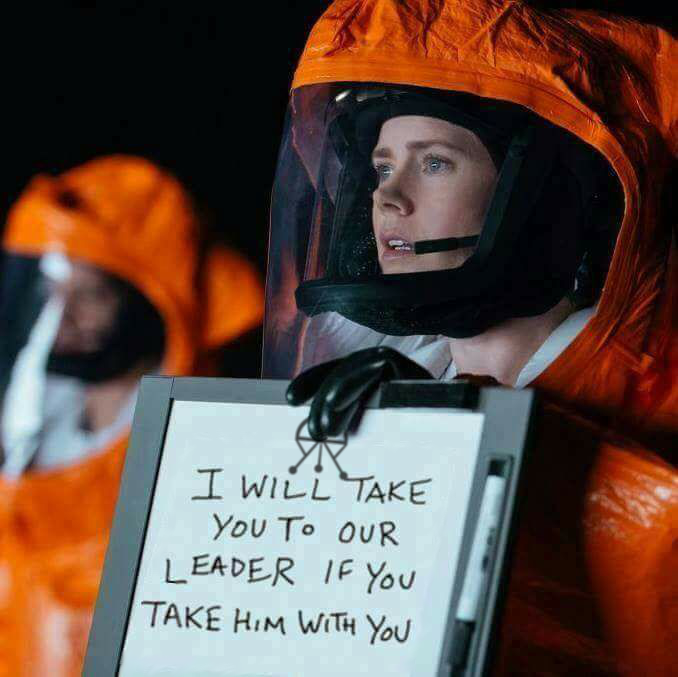 I WILL TAKE
YOU TO OUR
LEADER IF YOU
TAKE HIM WITH YOU